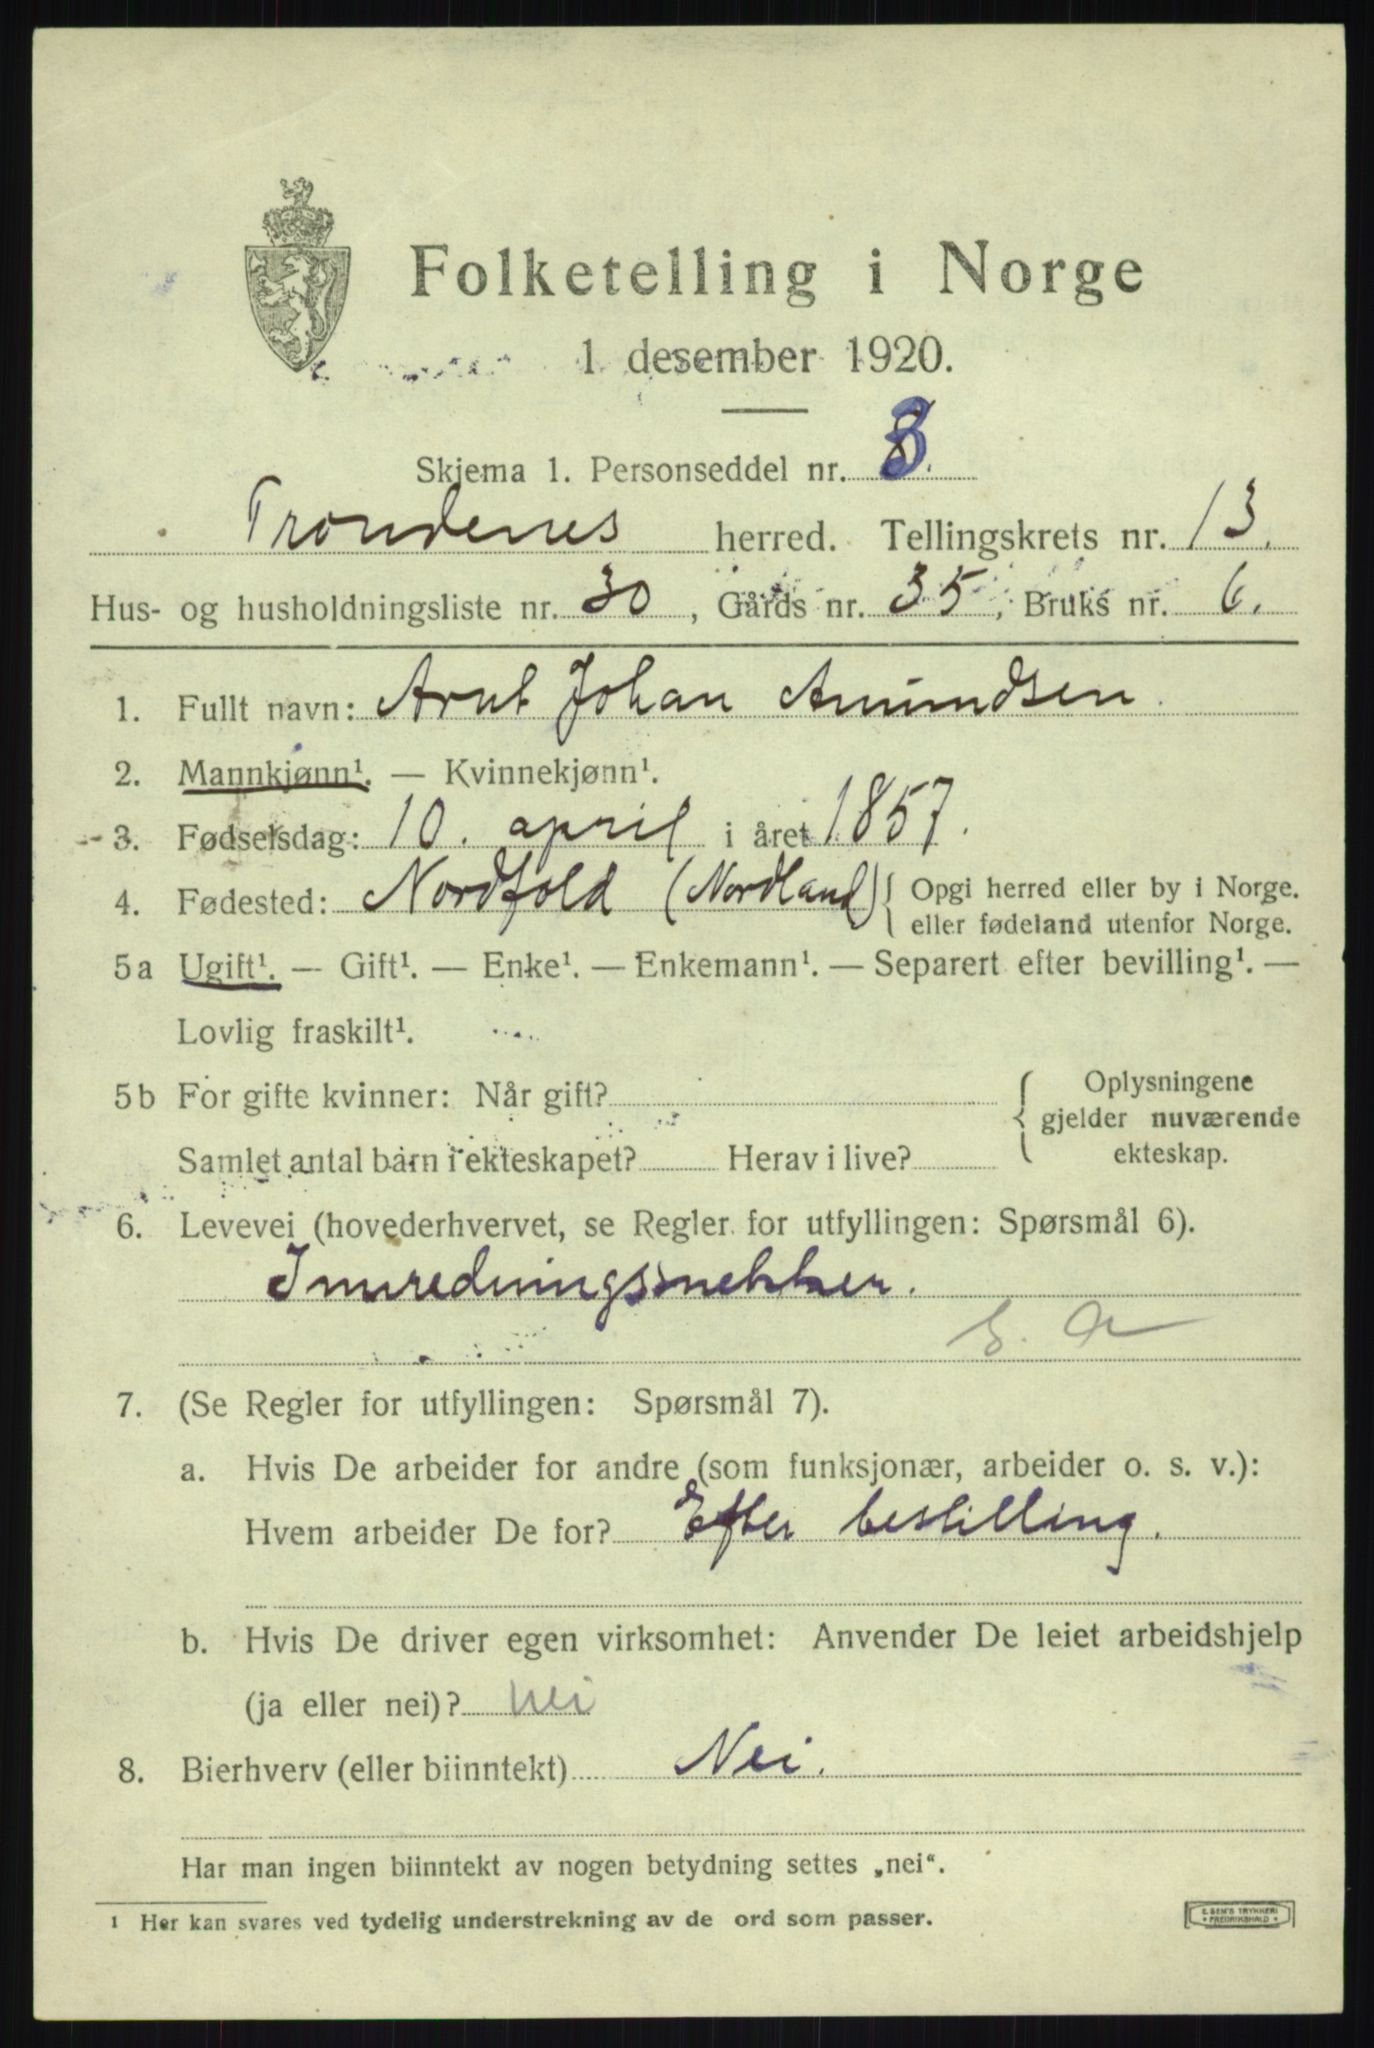 Folketelling i Norge
1 desember 1920.
Skjema 1. Personseddel nr. 3.
Trondenes herred. Tellingskrets nr. 13.
Hus- og husholdningsliste nr. 30, Gårds nr. 35, Bruks nr. 6.
1. Fullt navn: Arnt Johan Amundsen.
2. Mannkjønn¹. — Kvinnekjønn¹.
3. Fødselsdag: 10. april i året 1857.
4. Fødested: Nordfold (Nordland) { Opgi herred eller by i Norge.
eller fødeland utenfor Norge.
5a Ugift¹. — Gift¹. — Enke¹. — Enkemann¹. — Separert efter bevilling¹. —
Lovlig fraskilt¹.
5b For gifte kvinner: Når gift?
Samlet antal barn i ekteskapet? Herav i live?
{ Oplysningene
gjelder nuværende
ekteskap.
6. Levevei (hovederhvervet, se Regler for utfyllingen: Spørsmål 6).
Innredningssnekker.
E. A
7. (Se Regler for utfyllingen: Spørsmål 7).
a. Hvis De arbeider for andre (som funksjonær, arbeider o. s. v.):
Hvem arbeider De for? Efter bestilling.
b. Hvis De driver egen virksomhet: Anvender De leiet arbeidshjelp
(ja eller nei)? nei
8. Bierhverv (eller biinntekt) Nei.
Har man ingen biinntekt av nogen betydning settes „nei“.
1 Her kan svares ved tydelig understrekning av de ord som passer.
E. SEM'S TRYKKERI
• FREDRIKSHALD •